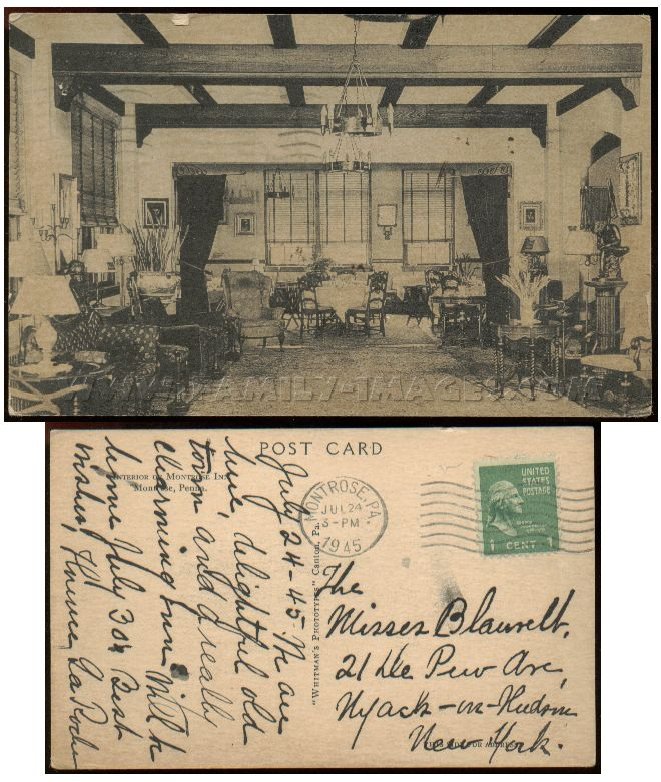 WWW.FAMILY-IMAGES.COM
POST CARD
INTERIOR OF MONTROSE INN
Montrose, Penna.
July 24-45- 
here, delightful old
town and a really
charming Inn. Will be
home July 30th Best
wishes, Florence La Roche
"WHITMAN'S PHOTOTYPES" Canton, Pa.
MONTROSE, PA.
JUL 24
3-PM
1945
UNITED
STATES
POSTAGE
1 CENT 1
The
Misses Blauvelt,
21 De Pew Ave,
Nyack-on-Hudson
New York.
THIS SIDE FOR ADDRESS